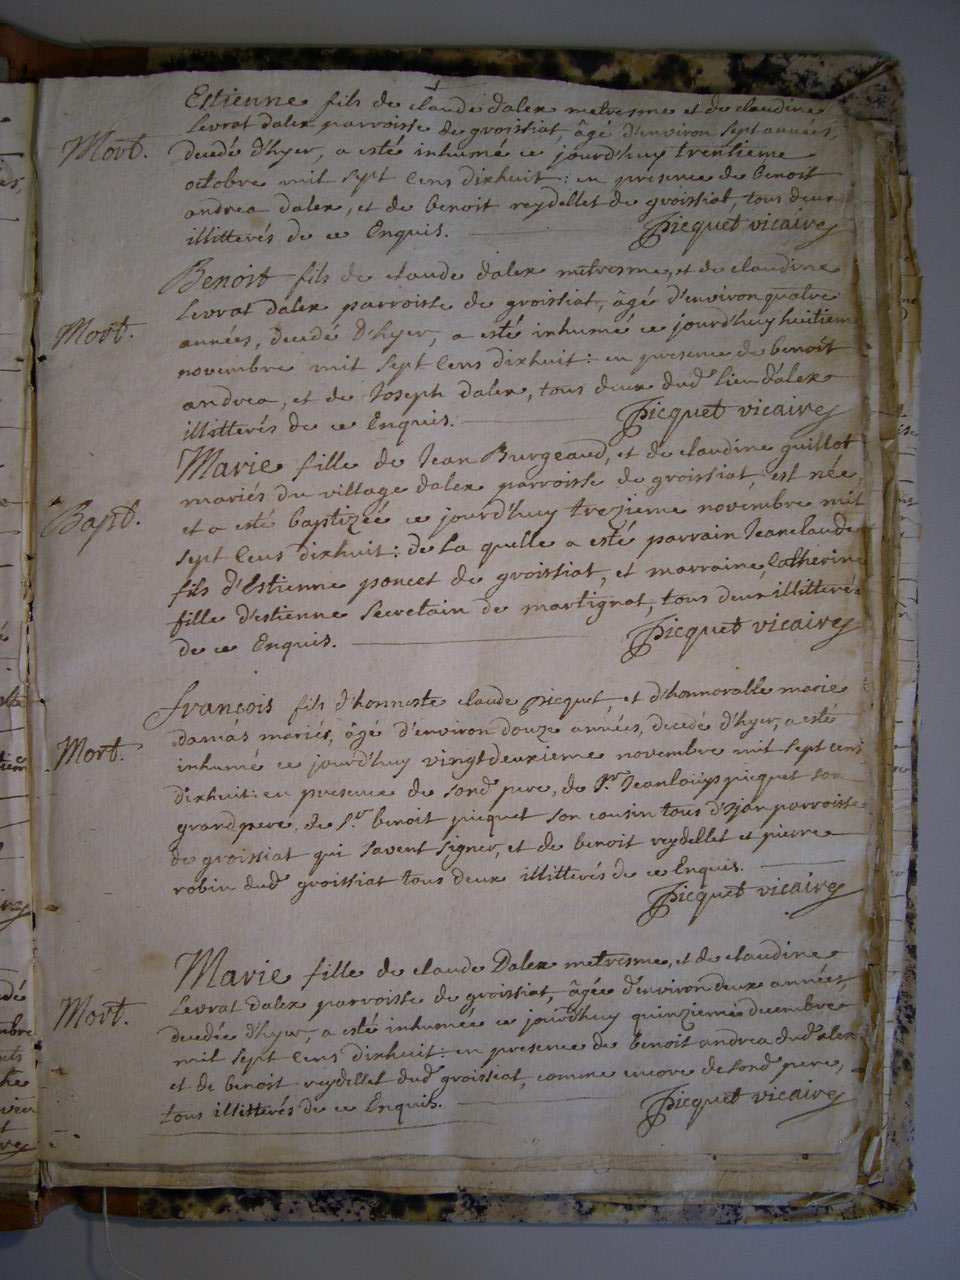 Mort.
Estienne fils de claude dalex metresme et de claudine
Levrat dalex parroisse de groissiat, âgé d'environ sept années,
decedé d'hyer, a esté inhumé ce jourd'huy trentieme
octobre mil sept cens dixhuit: en presence de benoit
andrea dalex, et de benoit reydellet de groissiat, tous deux
illitterés de ce Enquis. Picquet vicaire
Mort.
Benoit fils de claude dalex metresme, et de claudine
Levrat dalex parroisse de groissiat, âgé d'environ quatre
années, decedé d'hyer, a esté inhumé ce jourd'huy huitieme
novembre mil sept cens dixhuit: en presence de benoit
andrea, et de Joseph dalex, tous deux dud. lieu d'alex
illitterés de ce Enquis. Picquet vicaire
Bapt.
Marie fille de Jean Burgeaud, et de claudine guillot
mariés du village dalex parroisse de groissiat, est née,
et a esté baptizée ce jourd'huy trezieme novembre mil
sept cens dixhuit: de la quelle a esté parrain Jeanclaude
fils d'Estienne poncet de groissiat, et marraine Catherine
fille d'estienne Secretain de martignat, tous deux illitterés
de ce Enquis. Picquet vicaire
Mort.
françois fils d'honneste claude picquet, et d'honnorable marie
damas mariés, âgé d'environ douze années, decedé d'hyer, a esté
inhumé ce jourd'huy vingtdeuxieme novembre mil sept cens
dixhuit: en presence de sond. pere, de Sr. Jeanloüys picquet son
grandpere, de Sr. benoit picquet son cousin tous d'Ijan parroisse
de groissiat qui savent signer, et de benoit reydellet et pierre
robin dud. groissiat tous deux illitterés de ce Enquis.
Picquet vicaire
Mort.
Marie fille de claude Dalex metresme, et de claudine
Levrat dalex parroisse de groissiat, âgée d'environ deux années,
decedée d'hyer, a esté inhumée ce jourd'huy quinzieme decembre
mil sept cens dixhuit: en presence de benoit andrea dud. alex
et de benoit reydellet dud. groissiat, comme encore de sond. pere,
tous illitterés de ce Enquis. Picquet vicaire